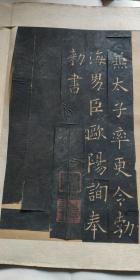 兼太子率更令勃
海男臣歐陽詢奉
勅書